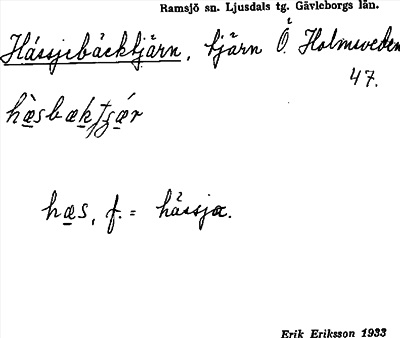 Ramsjö sn. Ljusdals tg. Gävleborgs län.
Hässjebäcktjärn, tjärn Ö. Holmsveden
47.
hæ̀sbæk
hæs, f. = hässja.
Erik Eriksson 1933